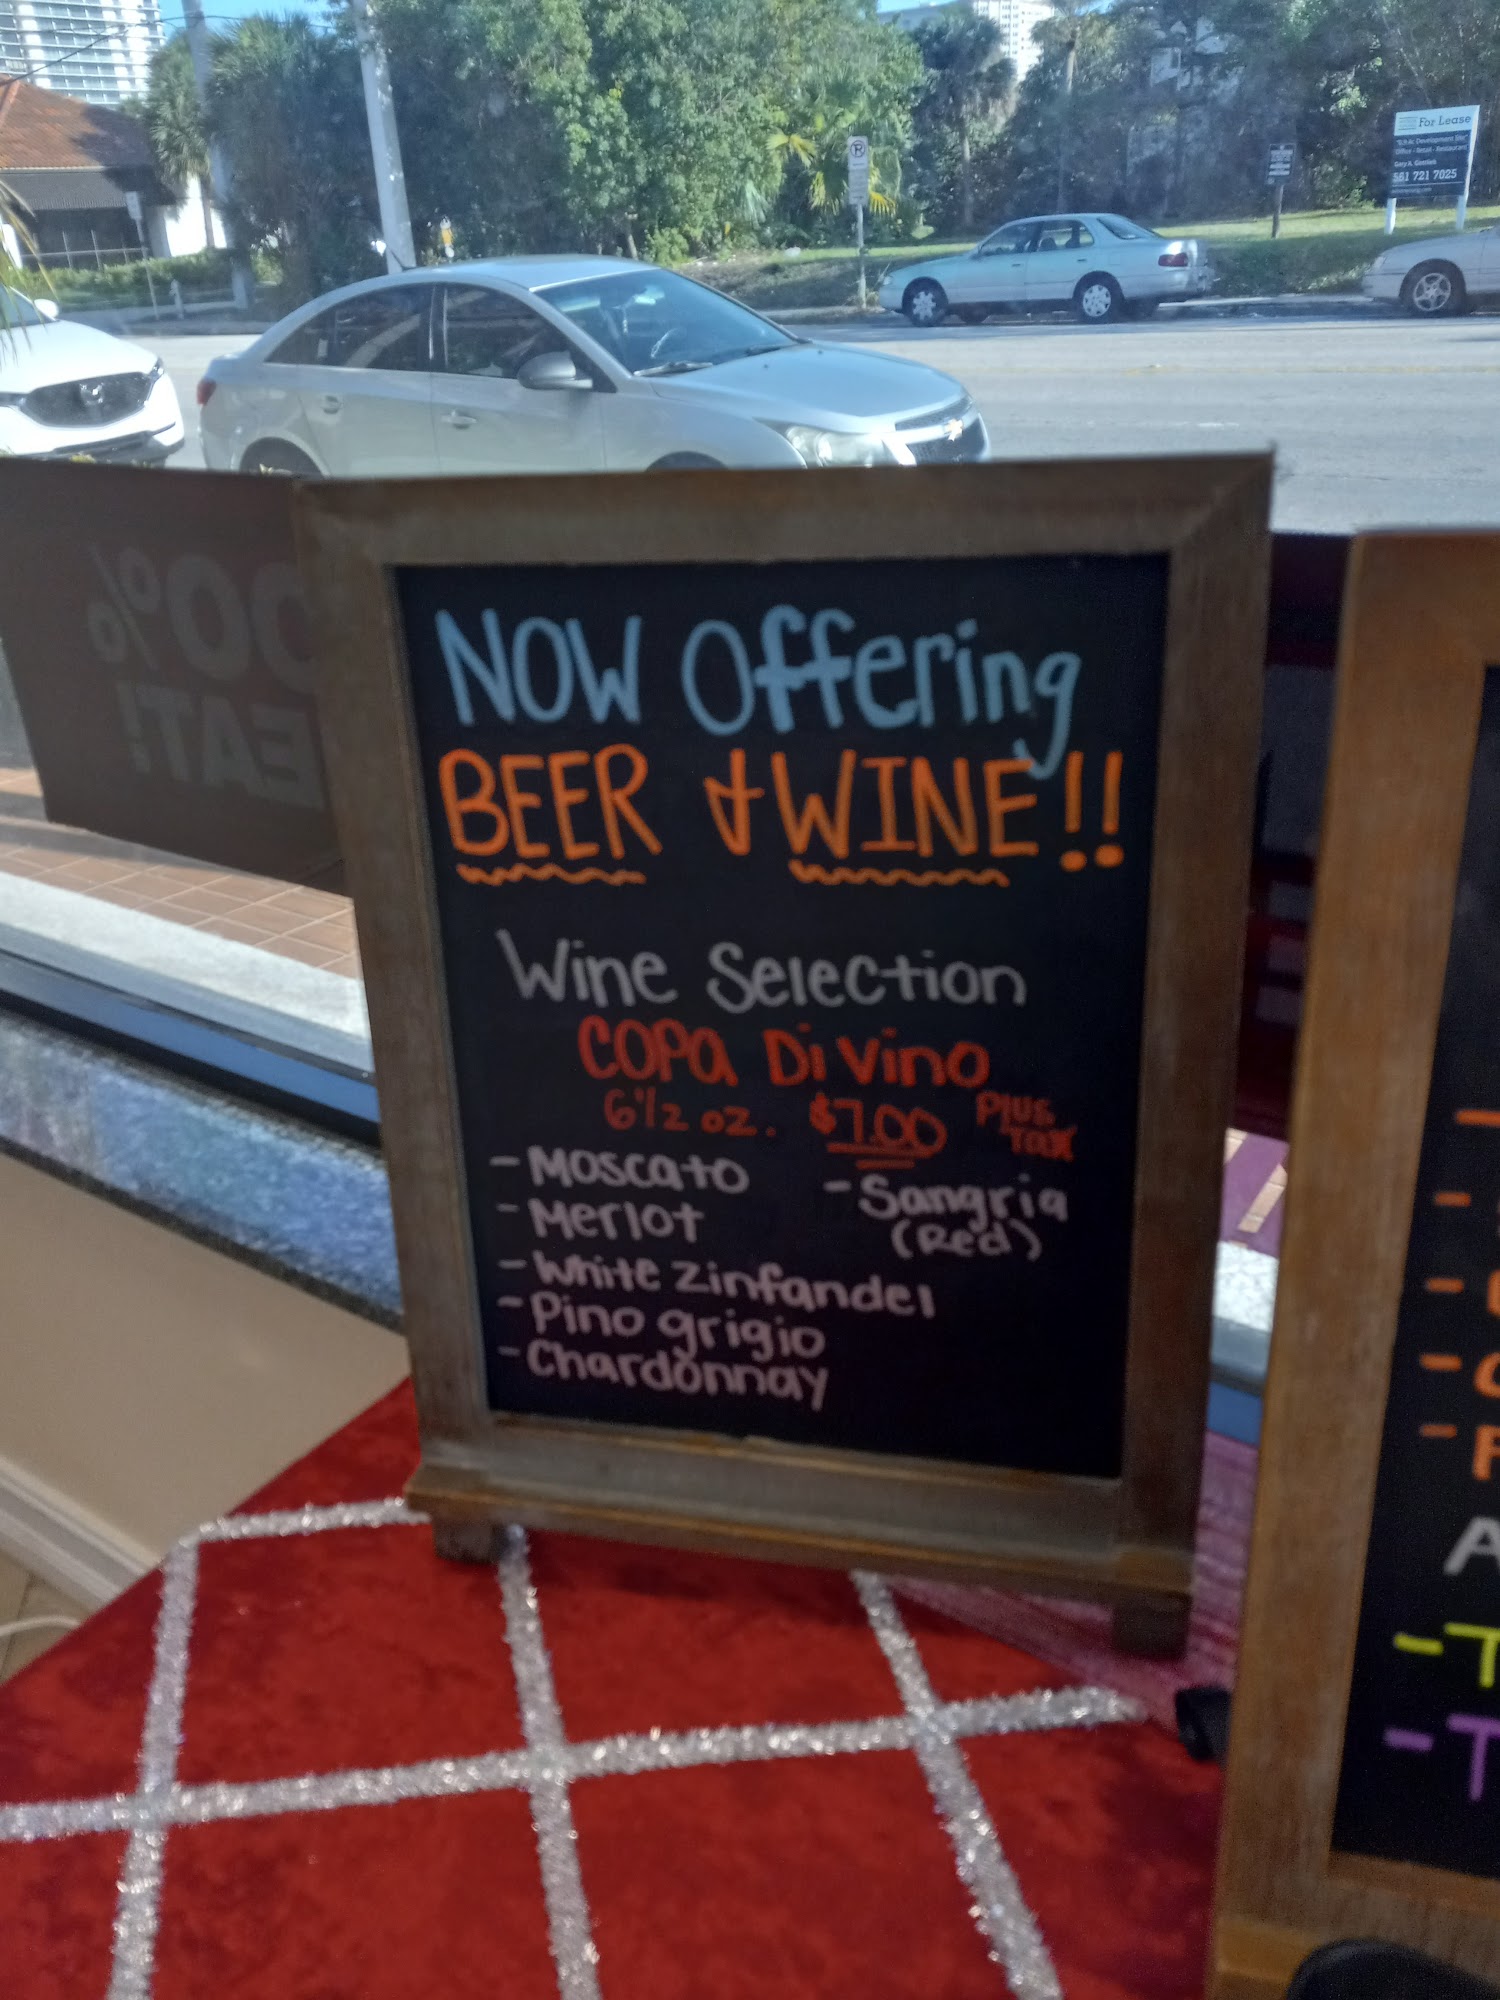 For Lease
561 721 7025
NOW Offering
BEER & WINE!!
Wine Selection
COPA Di Vino
6 1/2 oz. $7.00 Plus Tax
- Moscato
- Sangria (Red)
- Merlot
- White Zinfandel
- Pino grigio
- Chardonnay